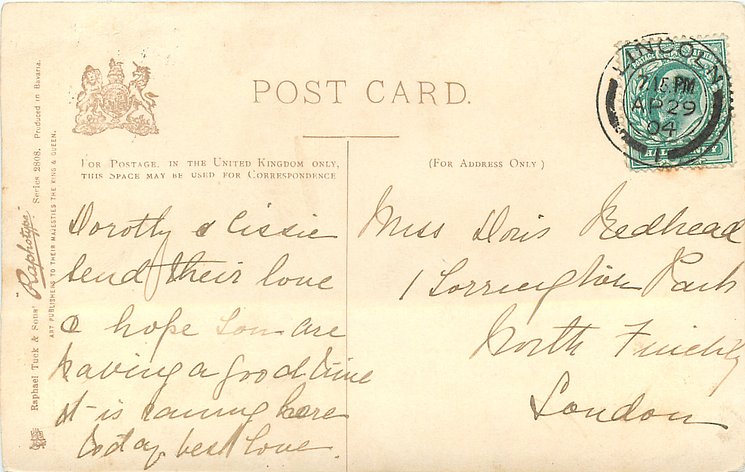 POST CARD.
FOR POSTAGE, IN THE UNITED KINGDOM ONLY,
THIS SPACE MAY BE USED FOR CORRESPONDENCE
(FOR ADDRESS ONLY)
LINCOLN
7.15 PM
AP 29
04
Dorothy & Cissie
send their love
& hope you are
having a good time
it is raining here
today, best love.
Miss Doris Redhead
1 Torrington Park
North Finchley
London
Raphael Tuck & Sons' "Raphotype" Series 2808. Produced in Bavaria.
ART PUBLISHERS TO THEIR MAJESTIES THE KING & QUEEN.